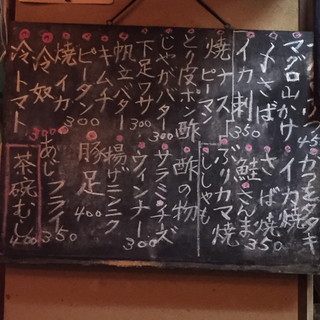 マグロ山かけ
〆さば
イカ刺 350
焼ナス
ピーマン
とり皮ポン酢
じゃがバター 300
下足ワサ 300
帆立バター
キムチ
ピータン
焼イカ
冷奴
冷トマト 300
カツオタタキ 450
イカ焼
さば焼 350
鮭さんま
ぶりカマ焼
ししゃも
酢の物
サラミ・チーズ
ウィンナー 300
揚ゲニンニク
豚足 400
あじフライ 350
茶碗むし 400